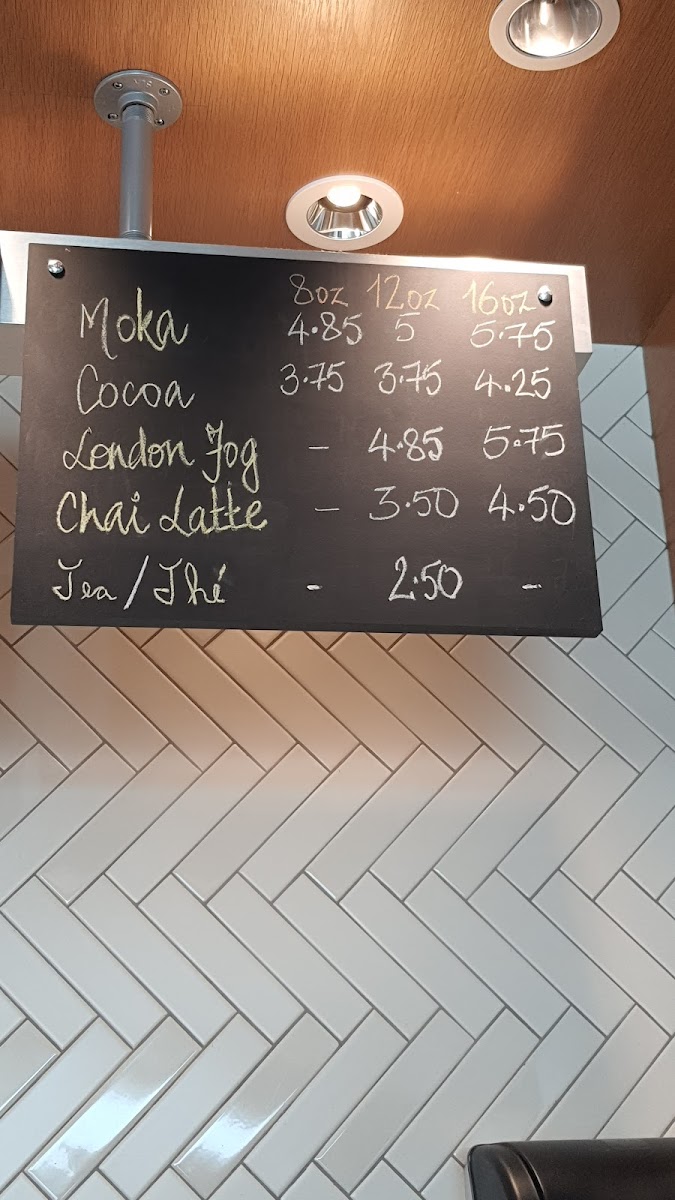 8oz 12oz 16oz
Moka 4.85 5 5.75
Cocoa 3.75 3.75 4.25
London Fog - 4.85 5.75
Chai Latte - 3.50 4.50
Tea / Thé - 2.50 -